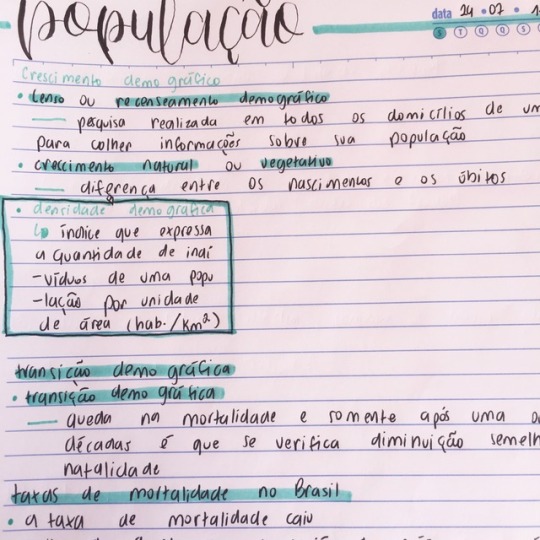 população
data 24 • 07 •
S T Q Q S
crescimento demográfico
• censo ou recenseamento demográfico
— pesquisa realizada em todos os domicílios de
para colher informações sobre sua população
• crescimento natural ou vegetativo
— diferença entre os nascimentos e os óbitos
• densidade demográfica
↳ índice que expressa
a quantidade de indi
-víduos de uma popu
-lação por unidade
de área (hab./km²)
transição demográfica
• transição demográfica
— queda na mortalidade e somente após uma
décadas é que se verifica diminuição semelh
natalidade
taxas de mortalidade no Brasil
• a taxa de mortalidade caiu